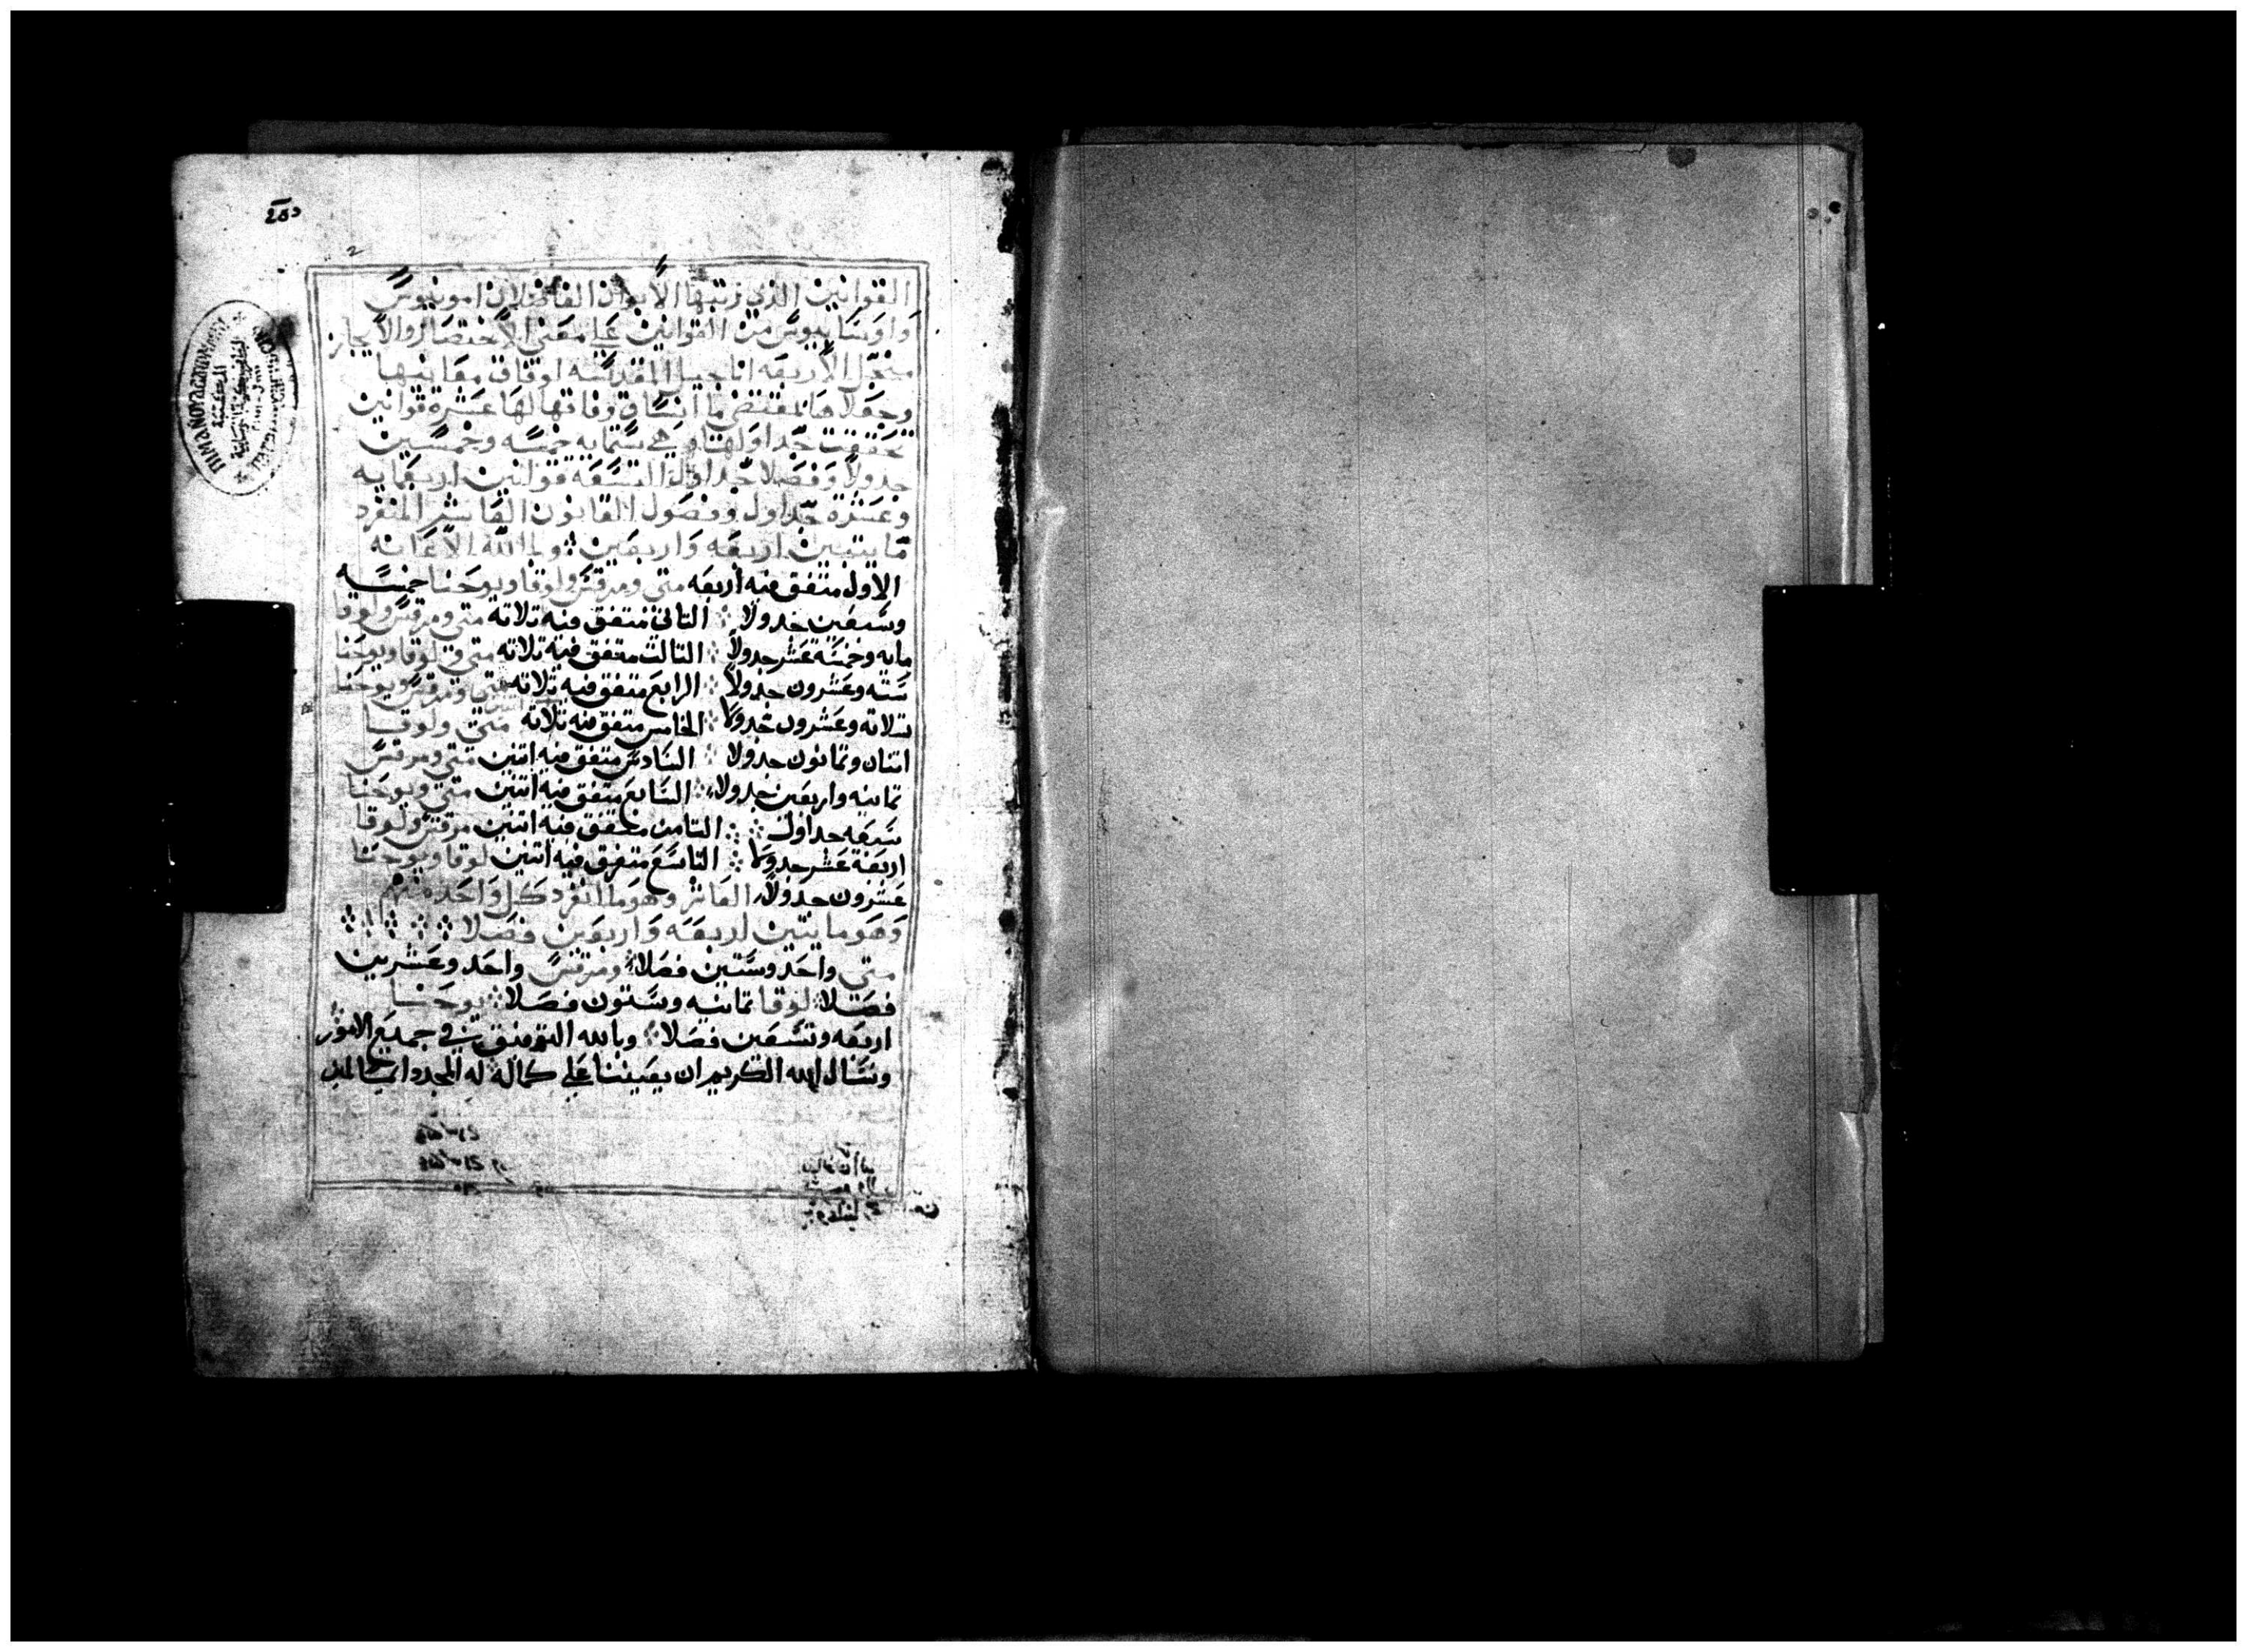 القوانين الذي رتبها الأبوان الفاضلان امونيوس
واوسابيوس من القوانين على معنى الاختصار والايجاز
من الأربعه اناجيل المقدسه اوفاق معانيها
وجعلاها بمقتضى ما اتفاقها لها عشرة قوانين
تحققت جداولها وهي ستمايه خمسه وخمسين
جدولاً وفصلا جداول التسعه قوانين اربعمايه
وعشرة جداول وفصول القانون العاشر المنفرد
مايتين اربعه واربعين ولله الاعانه
الاول متفق فيه أربعه متى ومرقس ولوقا ويوحنا خمسه
وسبعين جدولا التاني متفق فيه تلاته متى ومرقس ولوقا
مايه وخمسة عشر جدولاً التالت متفق فيه تلاته متى ولوقا ويوحنا
سته وعشرون جدولاً الرابع متفق فيه تلاته متى ومرقس ويوحنا
تلاته وعشرون جدولا الخامس متفق فيه تلاته متى ولوقا
اتنان وتمانون جدولا السادس متفق فيه اتنين متى ومرقس
تمانيه واربعين جدولا السابع متفق فيه اتنين متى ويوحنا
سبعه جداول التامن متفق فيه اتنين مرقس ولوقا
اربعة عشر جدولا التاسع متفق فيه اتنين لوقا ويوحنا
عشرون جدولاً العاشر وهو ما انفرد كل واحد منهم
وهو مايتين اربعه واربعين فصلا
متى واحد وستين فصلا ومرقس واحد وعشرين
فصلا لوقا تمانيه وستون فصلا يوحنا
اربعه وتسعين فصلا وبالله التوفيق في جميع الامور
ونسال الله الكريم ان يعيننا على كماله له المجد دايما امين